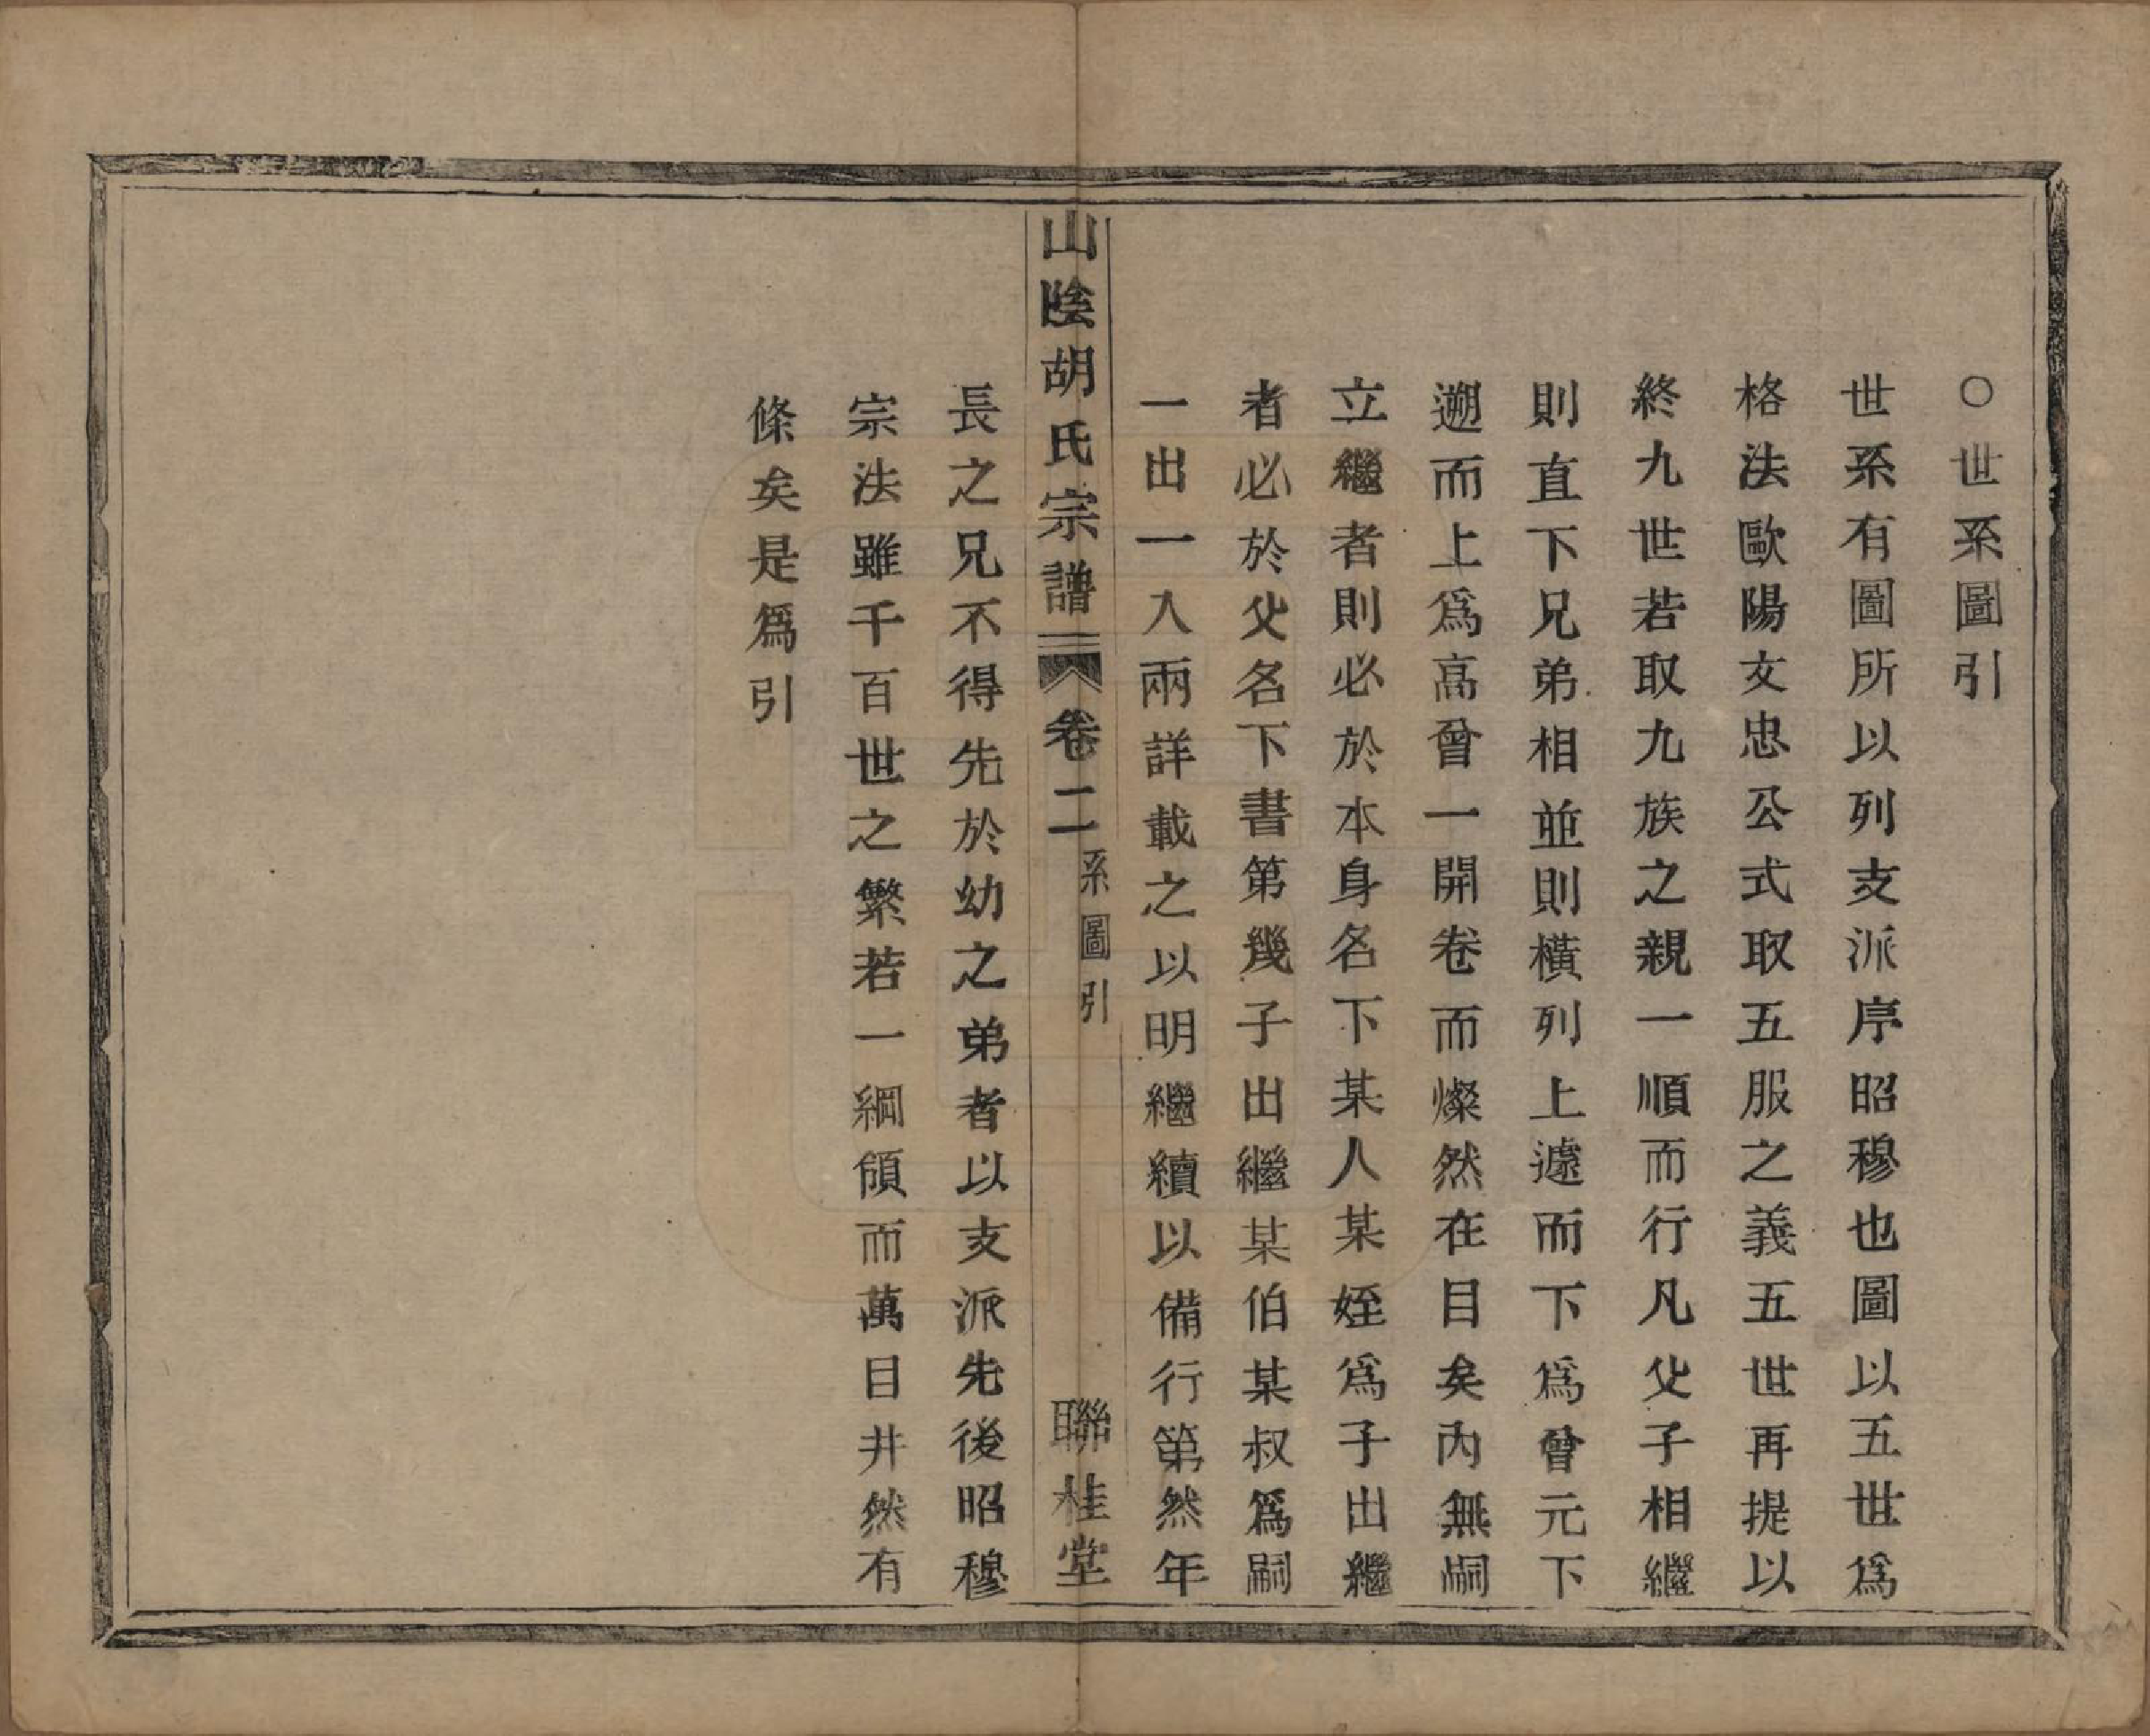 ○世系圖引
世系有圖所以列支派序昭穆也圖以五世爲
格法歐陽文忠公式取五服之義五世再提以
終九世若取九族之親一順而行凡父子相繼
則直下兄弟相並則橫列上遽而下爲曾元下
遡而上爲高曾一開卷而燦然在目矣內無嗣
立繼者則必於本身名下某人某姪爲子出繼
者必於父名下書第幾子出繼某伯某叔爲嗣
一出一入兩詳載之以明繼續以備行第然年
山陰胡氏宗譜 卷二 系圖引 聯桂堂
長之兄不得先於幼之弟者以支派先後昭穆
宗法雖千百世之繁若一綱領而萬目井然有
條矣是爲引